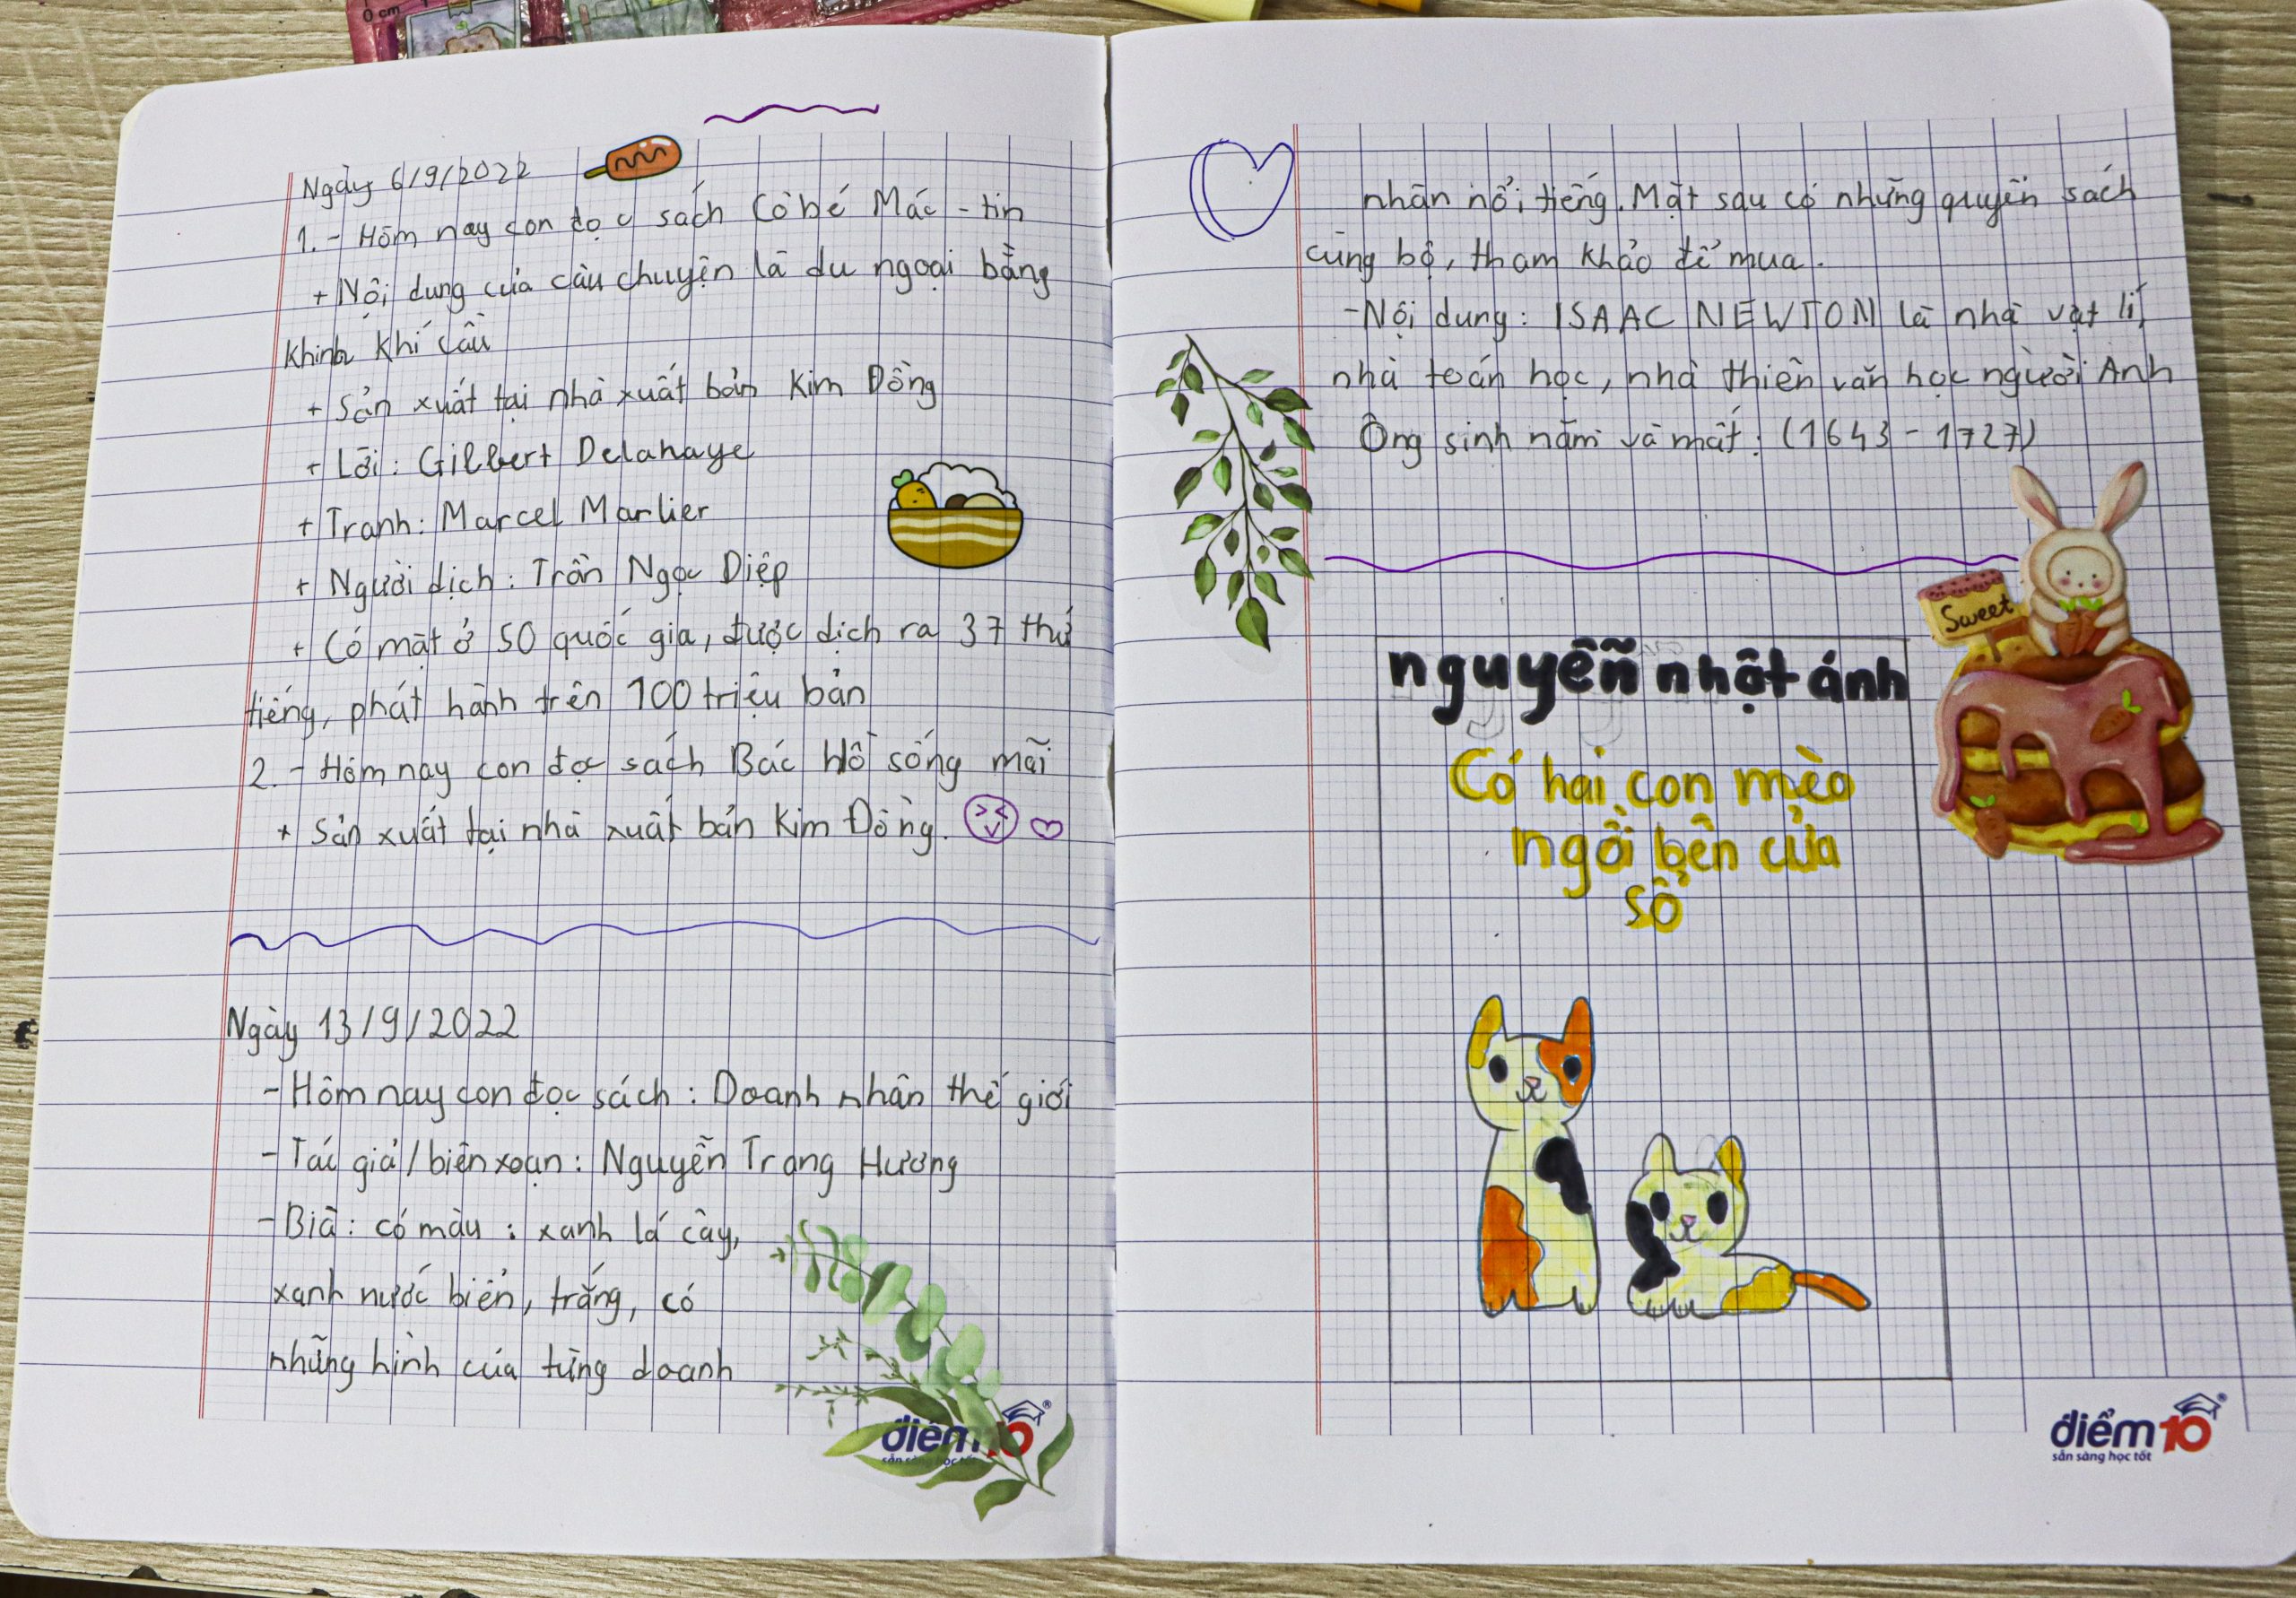 0 cm
Ngày 6/9/2022
1. - Hôm nay con đọc sách Cô bé Mác - tin
+ Nội dung của câu chuyện là du ngoại bằng
khinh khí cầu
+ Sản xuất tại nhà xuất bản Kim Đồng
+ Lời: Gilbert Delahaye
+ Tranh: Marcel Marlier
+ Người dịch: Trần Ngọc Diệp
+ Có mặt ở 50 quốc gia, được dịch ra 37 thứ
tiếng, phát hành trên 100 triệu bản
2. - Hôm nay con đọc sách Bác Hồ sống mãi
+ Sản xuất tại nhà xuất bản Kim Đồng.
Ngày 13/9/2022
- Hôm nay con đọc sách: Doanh nhân thế giới
- Tác giả/biên xoạn: Nguyễn Trang Hương
- Bìa: có màu: xanh lá cây,
xanh nước biển, trắng, có
những hình của từng doanh
điểm10
sẵn sàng học tốt
nhân nổi tiếng. Mặt sau có những quyển sách
cùng bộ, tham khảo để mua.
- Nội dung: ISAAC NEWTON là nhà vật lí,
nhà toán học, nhà thiên văn học người Anh
Ông sinh năm và mất: (1643 - 1727)
Sweet
nguyễn nhật ánh
Có hai con mèo
ngồi bên cửa
sổ
điểm10®
sẵn sàng học tốt